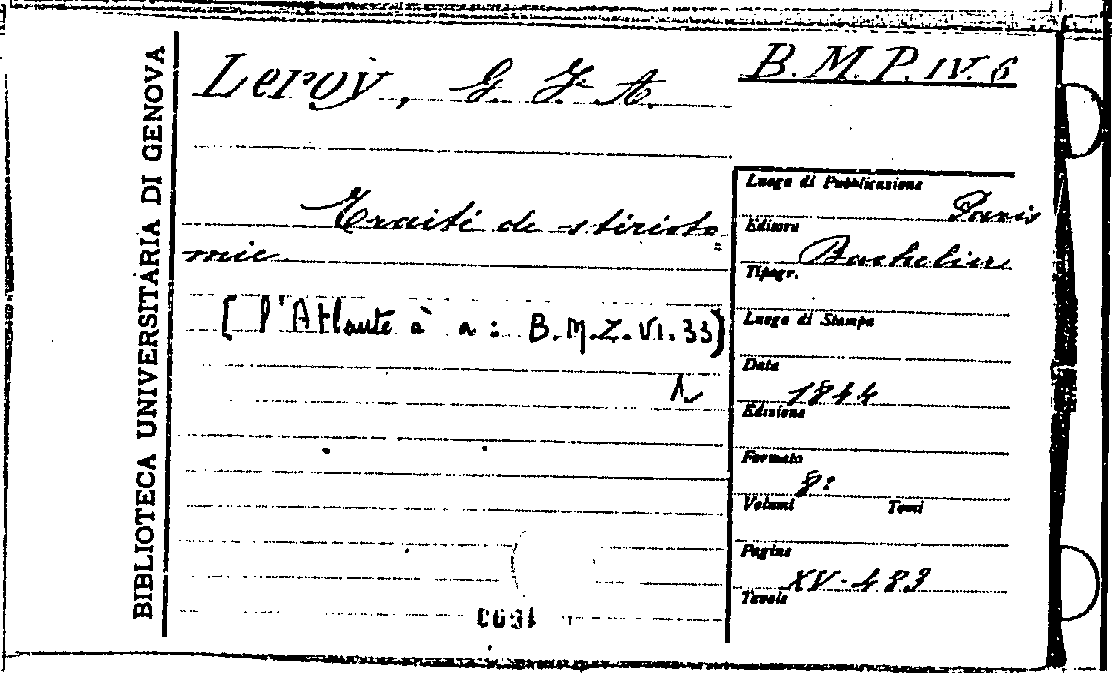 BIBLIOTECA UNIVERSITARIA DI GENOVA
Leroy, G. F. A.
B. M. P. IV. 6
Traité de stéréoto=
mie
[l'Atlante è a: B.M.Z.VI.33]
Luogo di Pubblicazione
Paris
Editore
Bachelier
Tipogr.
Luogo di Stampa
Data
1844
Edizione
Formato
8º
Volumi Tomi
Pagine
XV-483
Tavole